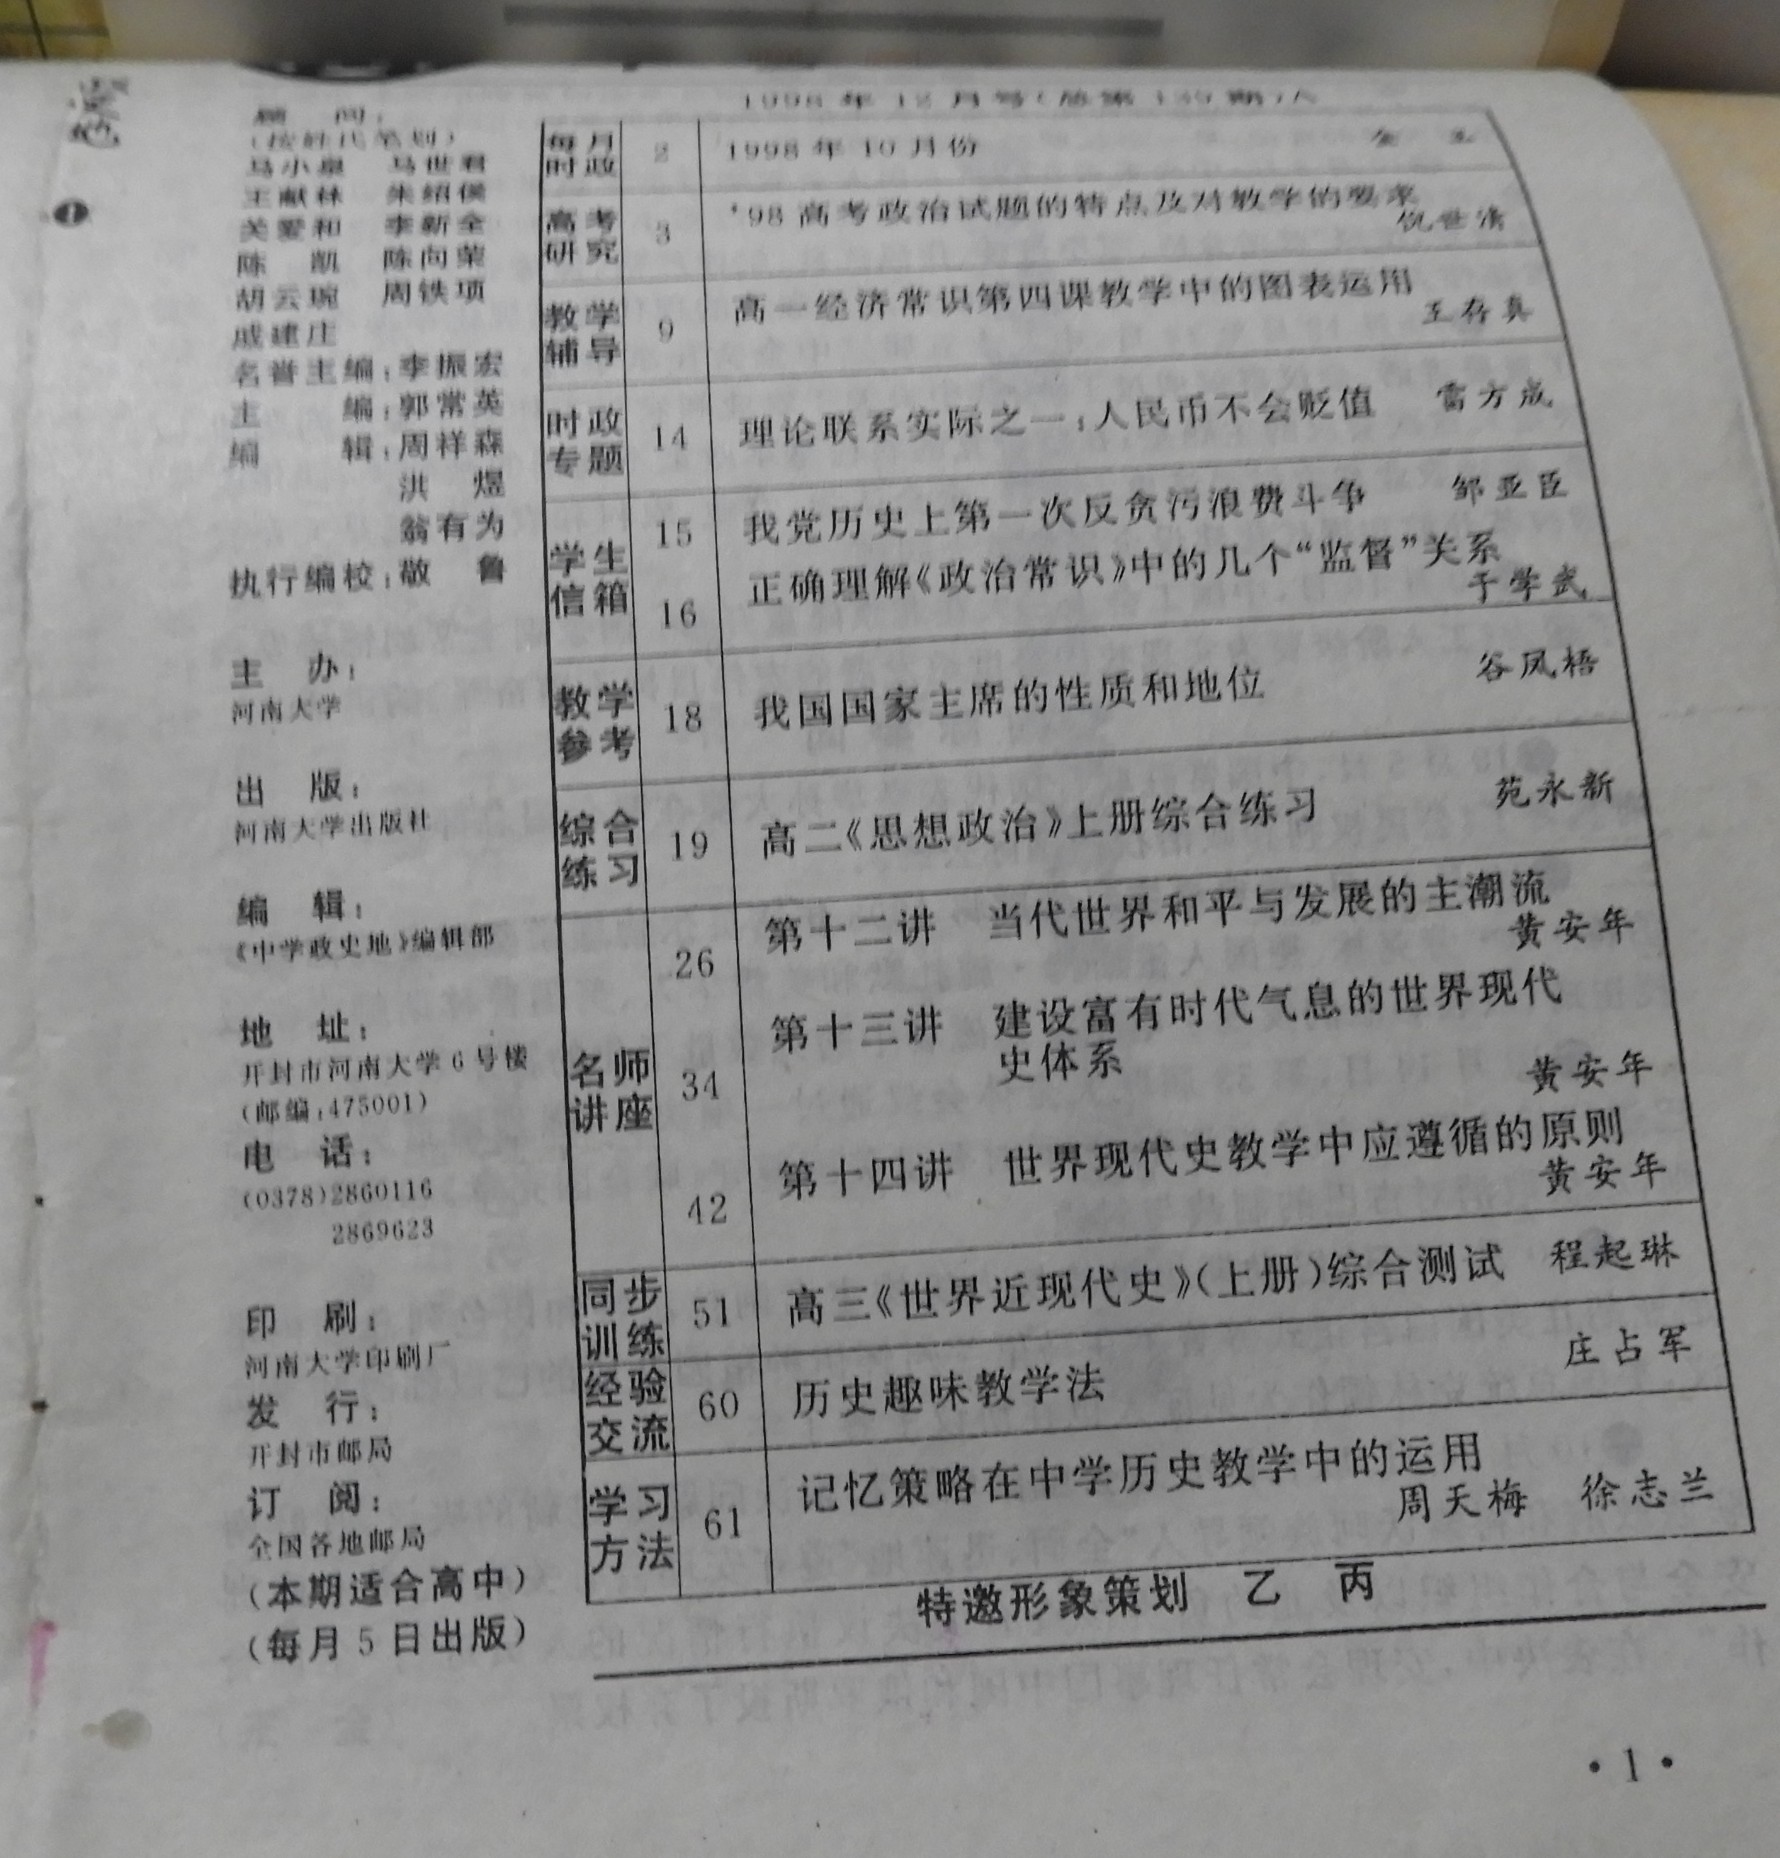 顾 问:
(按姓氏笔划)
马小泉 马世君
王献林 朱绍侯
关爱和 李新全
陈 凯 陈向荣
胡云琬 周铁项
戚建庄
名誉主编:李振宏
主 编:郭常英
编 辑:周祥森
洪 煜
翁有为
执行编校:敬 鲁
主 办:
河南大学
出 版:
河南大学出版社
编 辑:
《中学政史地》编辑部
地 址:
开封市河南大学6号楼
(邮编:475001)
电 话:
(0378)2860116
2869623
印 刷:
河南大学印刷厂
发 行:
开封市邮局
订 阅:
全国各地邮局
(本期适合高中)
(每月5日出版)
1998年12月号(总第 期)
每月时政 2 1998年10月份
高考研究 3 '98高考政治试题的特点及对教学的要求
倪世清
教学辅导 9 高一经济常识第四课教学中的图表运用
王存真
时政专题 14 理论联系实际之一:人民币不会贬值 雷方成
学生信箱 15 我党历史上第一次反贪污浪费斗争 邹亚臣
16 正确理解《政治常识》中的几个“监督”关系
于学武
教学参考 18 我国国家主席的性质和地位 谷凤梧
综合练习 19 高二《思想政治》上册综合练习 苑永新
名师讲座 26 第十二讲 当代世界和平与发展的主潮流
黄安年
34 第十三讲 建设富有时代气息的世界现代
史体系
黄安年
42 第十四讲 世界现代史教学中应遵循的原则
黄安年
同步训练 51 高三《世界近现代史》(上册)综合测试 程起琳
经验交流 60 历史趣味教学法 庄占军
学习方法 61 记忆策略在中学历史教学中的运用
周天梅 徐志兰
特邀形象策划 乙 丙
·1·